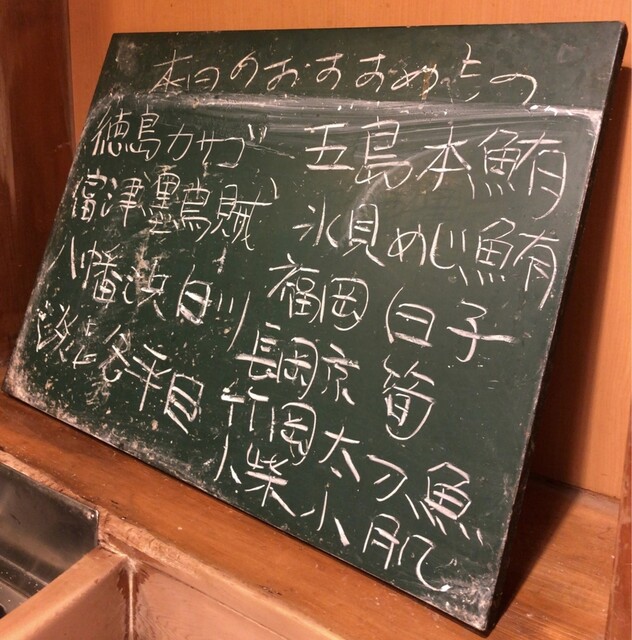 本日のおすすめもの
徳島カサゴ
富津墨烏賊
八幡浜白川
淡路平目
五島本鮪
氷見めじ鮪
福岡 白子
長岡京 筍
竹岡太刀魚
小柴小肌